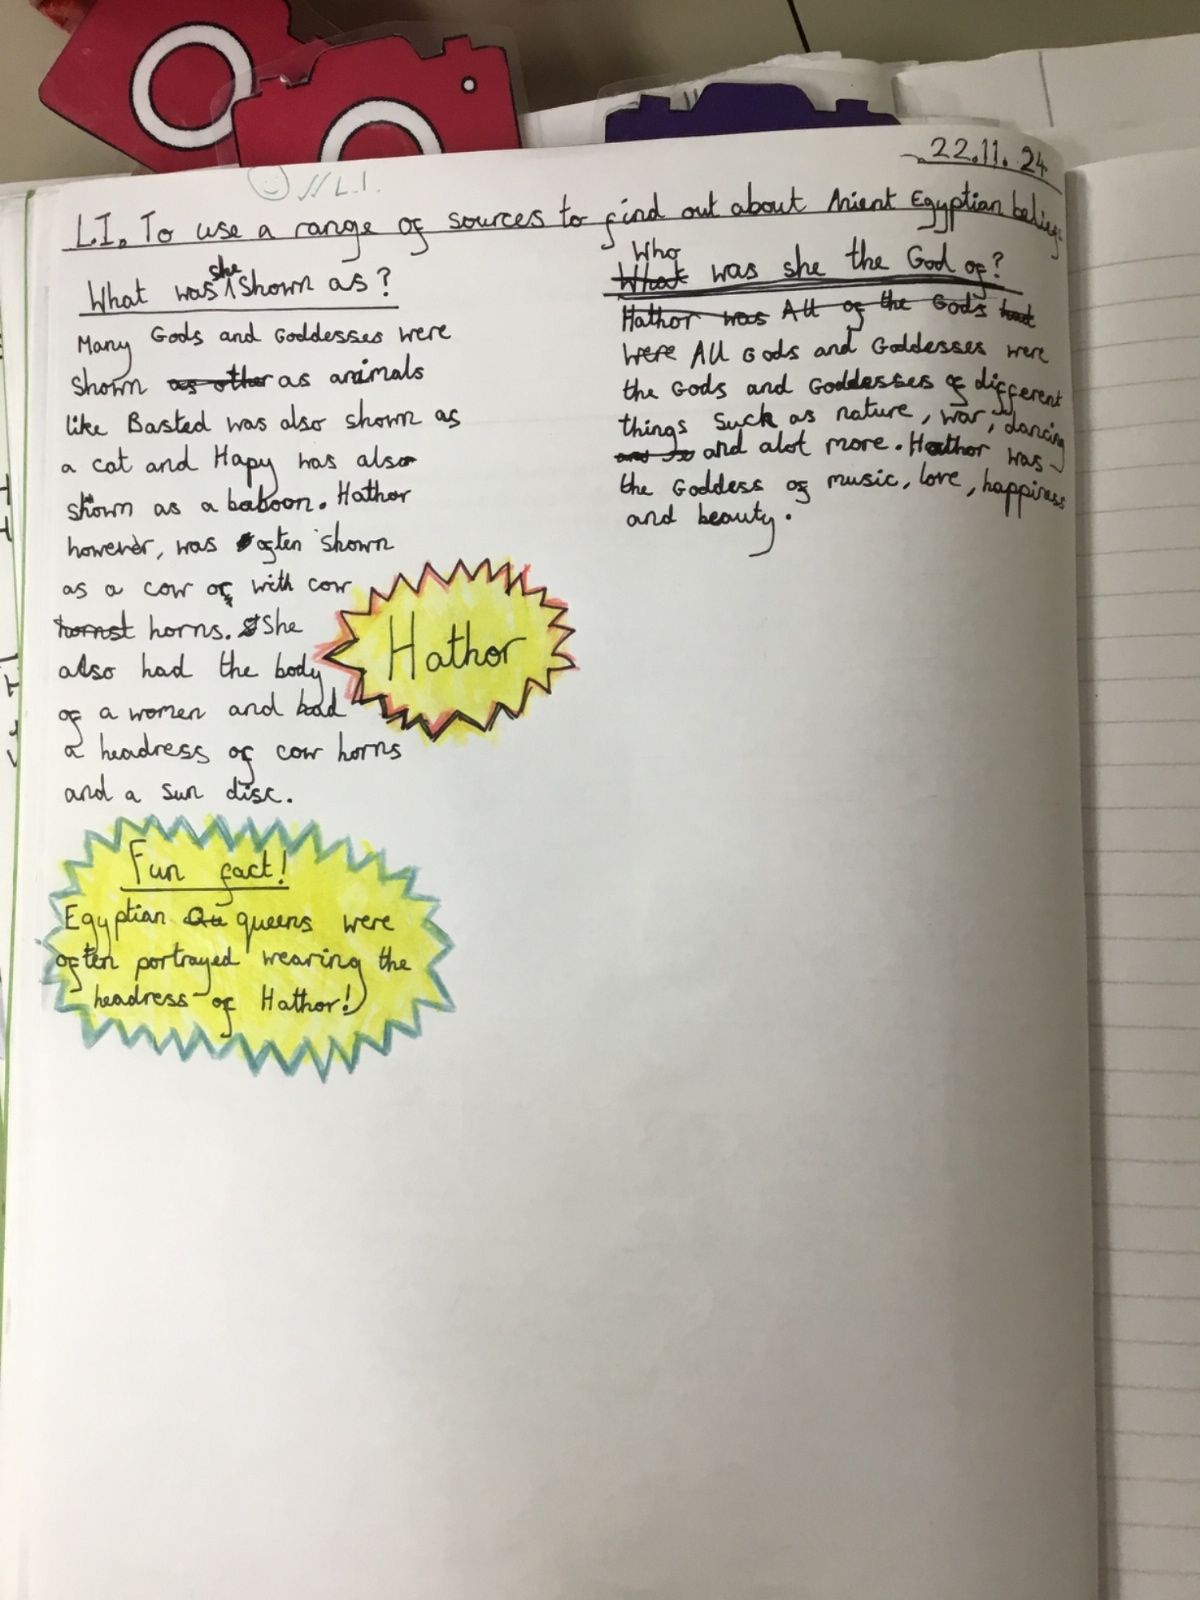 22.11.24
//L.I.
L.I. To use a range of sources to find out about Anient Egyptian beliefs
What was she shown as?
Many Gods and Goddesses were
shown as other as animals
like Basted was also shown as
a cat and Hapy was also
shown as a baboon. Hathor
however, was often shown
as a cow or with cow
hornst horns. She
also had the body
of a women and had
a headress of cow horns
and a sun disc.
Hathor
Fun fact!
Egyptian Qu queens were
often portrayed wearing the
headress of Hathor!
Who
What was she the God of?
Hathor was All of the Gods
were All Gods and Goddesses were
the Gods and Goddesses of different
things such as nature, war, dancing
and alot more. Hathor was
the Goddess of music, love, happiness
and beauty.